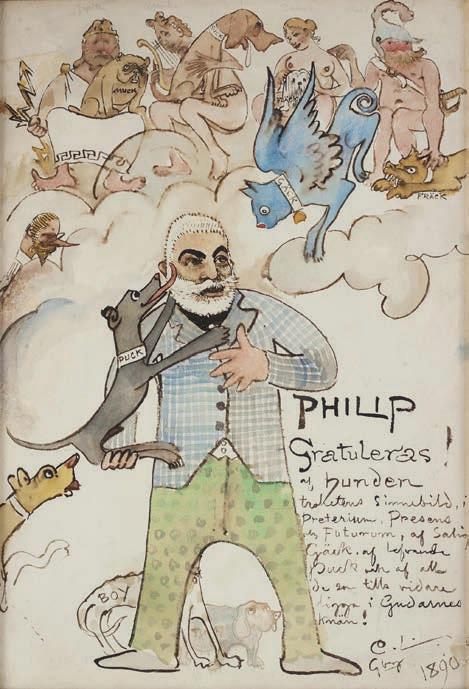 MUCK
FRÄCK
PUCK
PHILIP
Gratuleras!
af hunden
trohetens Sinnebild, i
Preterium, Presens,
Futurum, af Salig
Gäck, af lefvande
Puck och af alla
de som tills vidare
ligga i Gudarnes
knän!
BOY
C. L.
1890